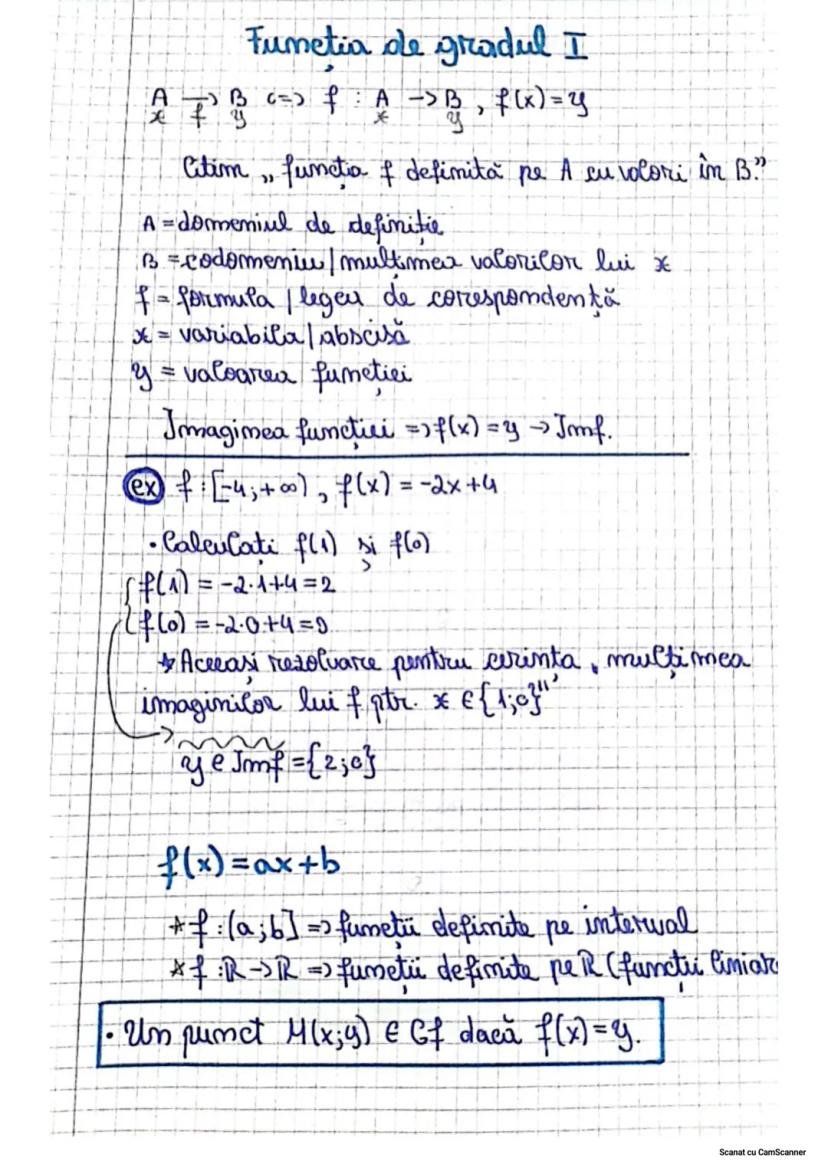 Funcția de gradul I
A →f B <=> f : A → B, f(x) = y
x y x y
Citim „funcția f definită pe A cu valori în B.”
A = domeniul de definiție
B = codomeniu | mulțimea valorilor lui x
f = formula | legea de corespondență
x = variabila | abscisă
y = valoarea funcției
Imaginea funcției => f(x) = y → Imf.
ex f : [-4; +∞), f(x) = -2x+4
• Calculați f(1) și f(0)
f(1) = -2·1+4 = 2
f(0) = -2·0+4 = 0
* Aceeași rezolvare pentru cerința „mulțimea
imaginilor lui f ptr. x ∈ {1;0}”
y ∈ Imf = {2;0}
f(x) = ax+b
* f : (a;b] => funcții definite pe interval
* f : ℝ → ℝ => funcții definite pe ℝ (funcții liniar
• Un punct M(x;y) ∈ Gf dacă f(x) = y.
Scanat cu CamScanner